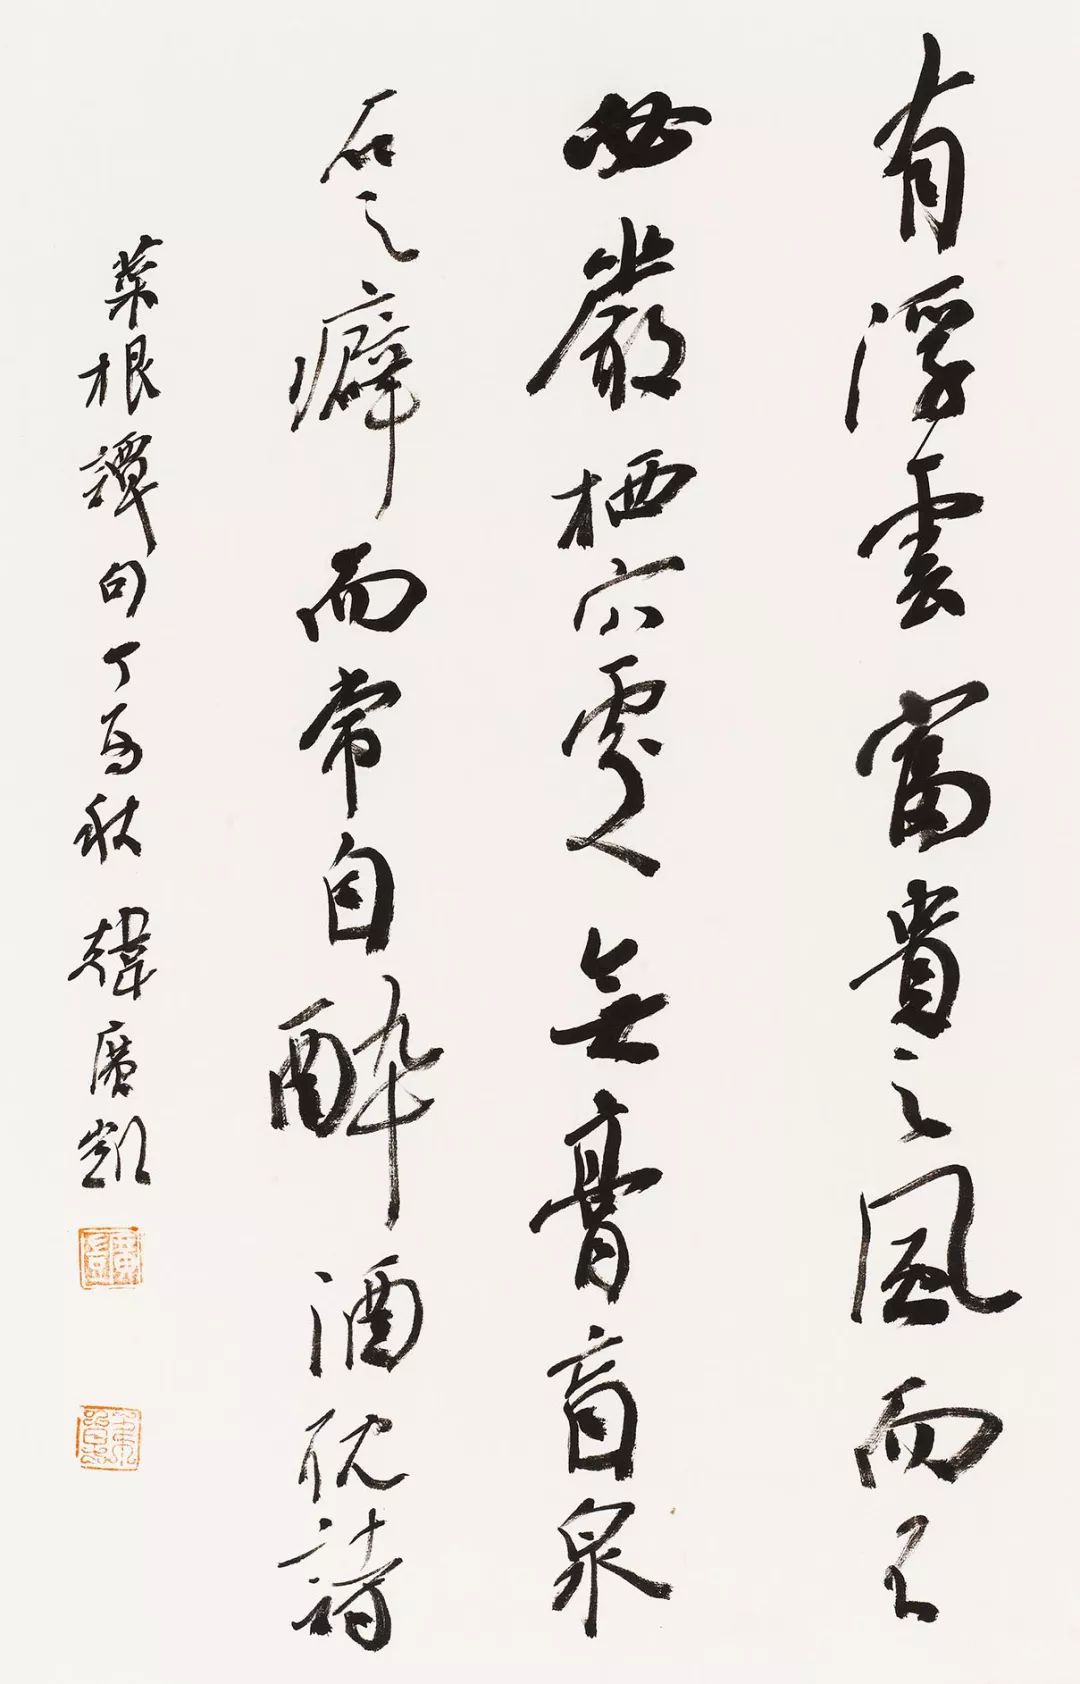 有浮雲富貴之風而不
必巖栖穴處無膏肓泉
石之癖而常自醉酒耽詩
菜根譚句丁酉秋 韓廣凱